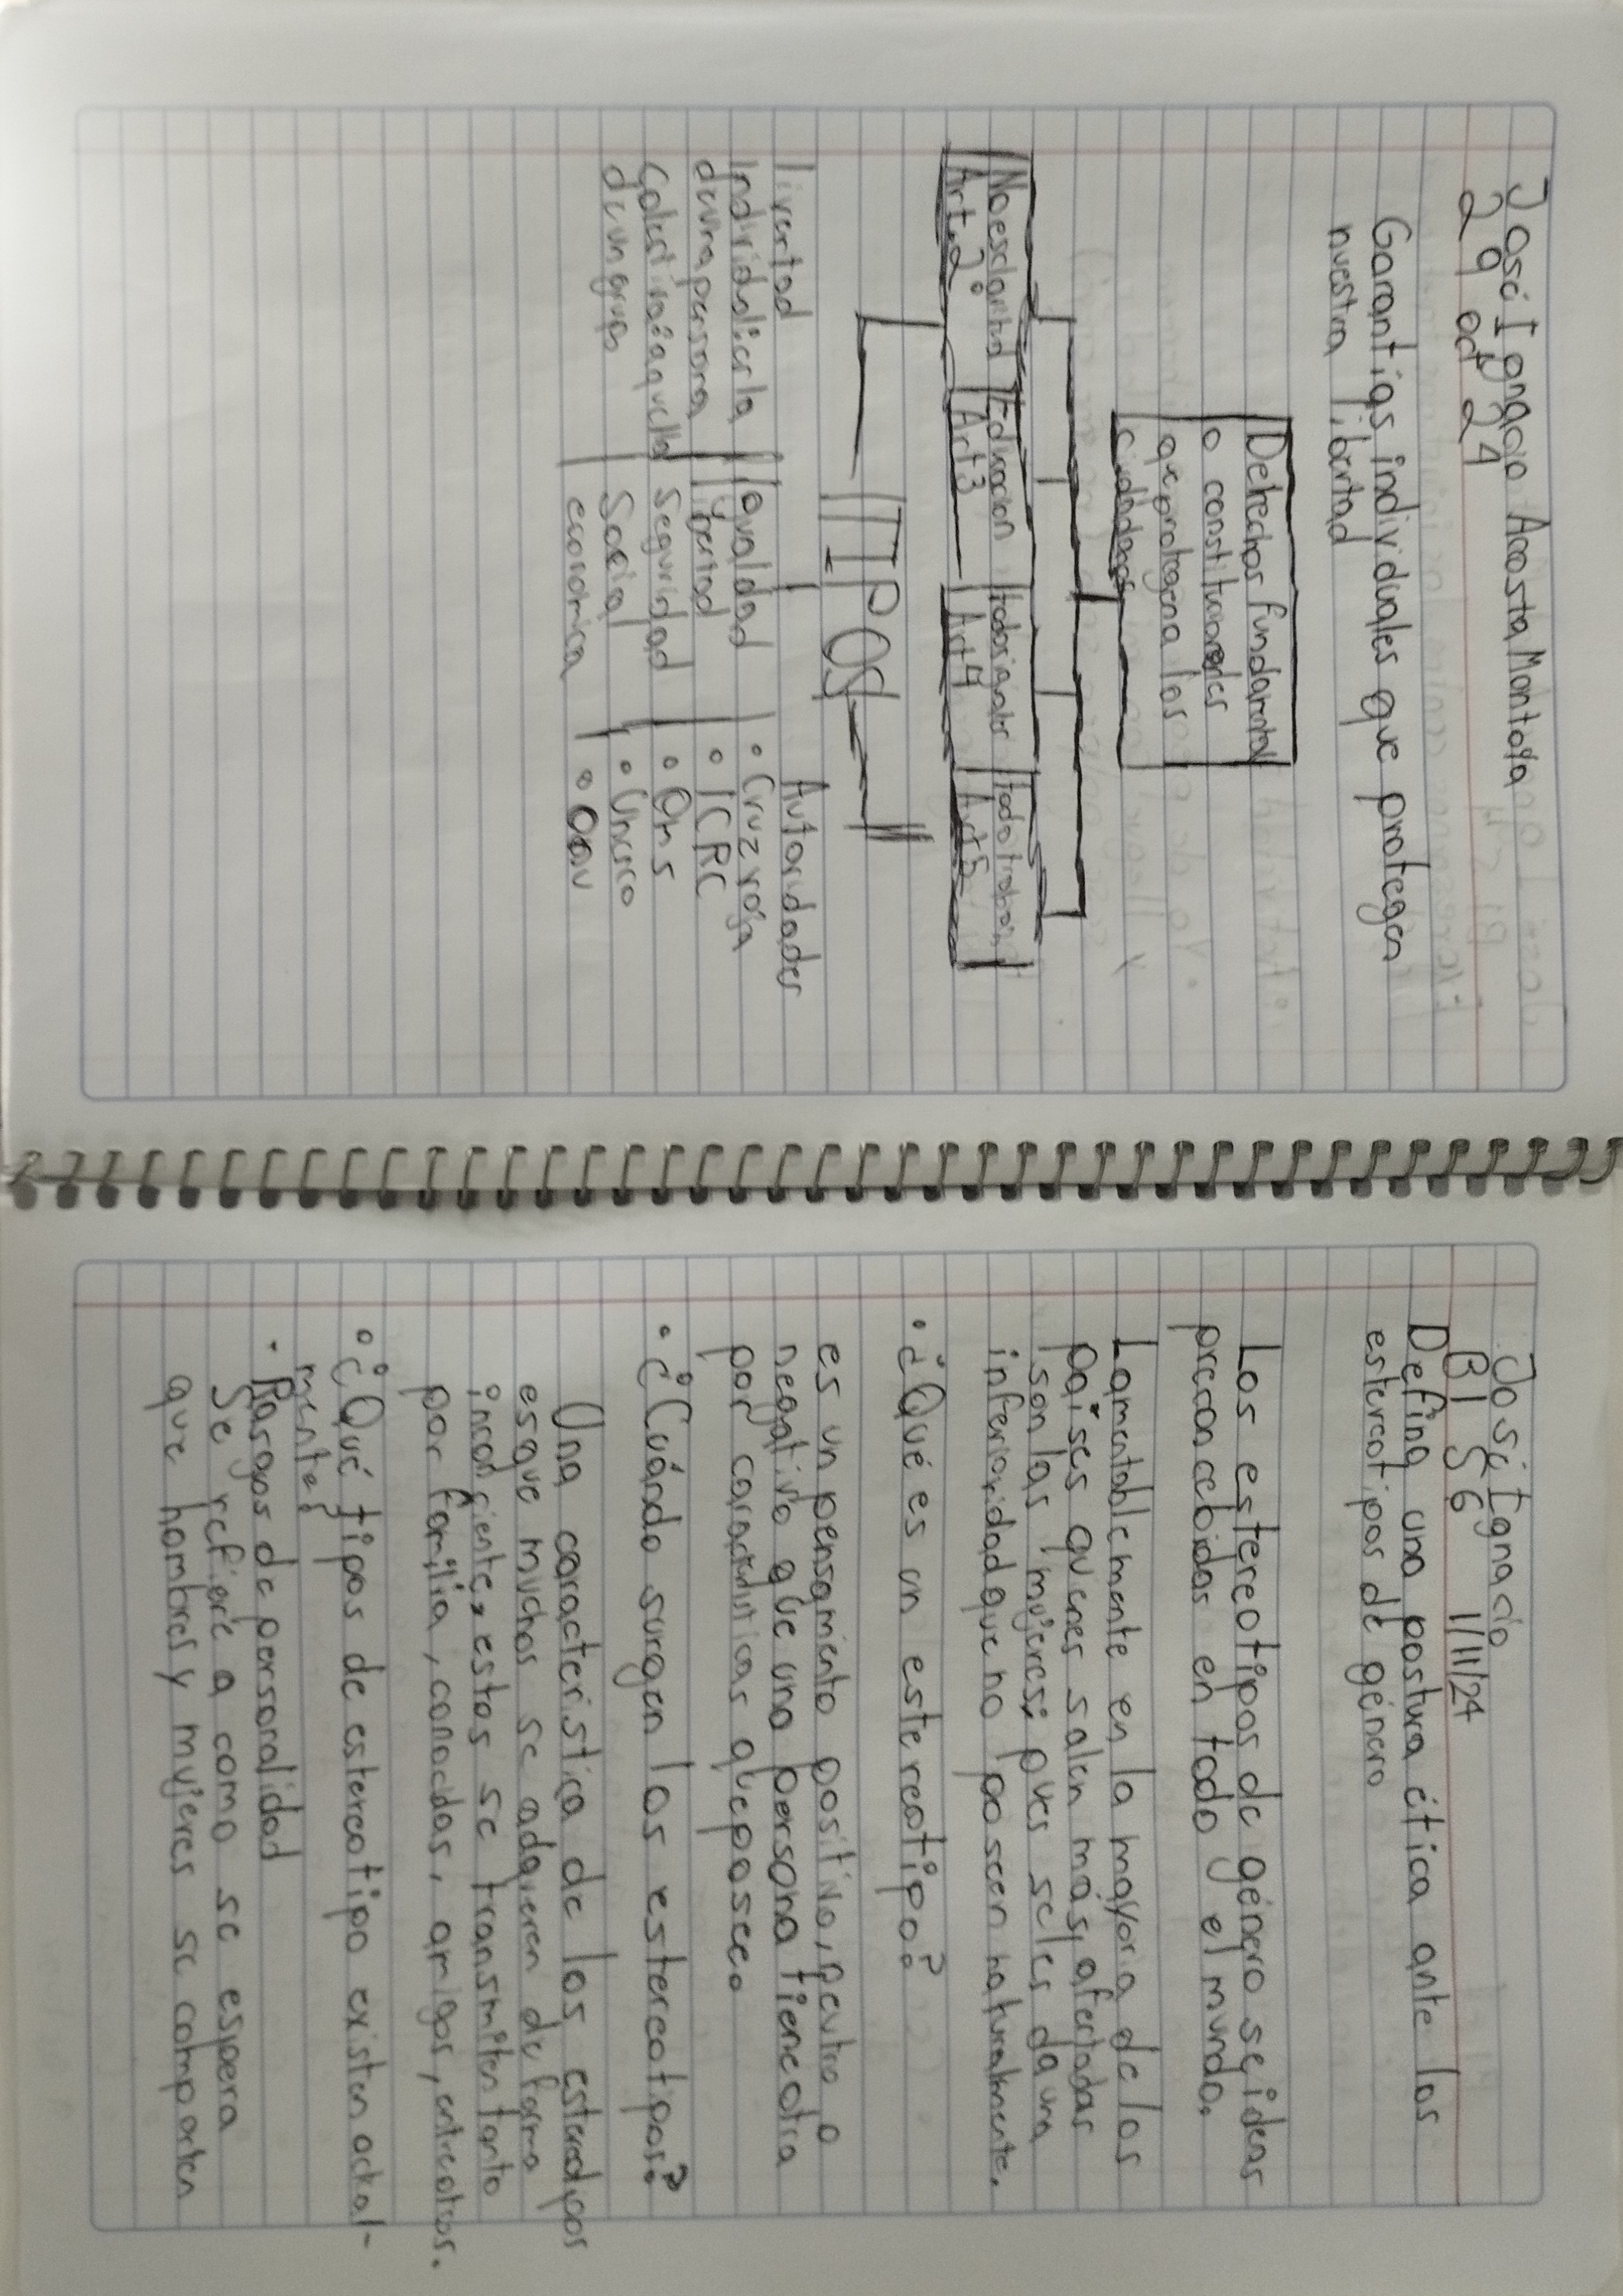 José Ignacio Acosta Montoya
29 oct 24
Garantias individuales que protegen
nuestra libertad
Derechos fundamental
o constitucionales
que protegena los
ciudadanos
No esclavitud
Art.2°
Educacion
Art3
todos iguales
Art4
todo trabajo
Art5
TIPOS
livertad
Individual:es la
de una persona
Colectiva:es aquella
de un grupo
Igualdad
y libertad
Seguridad
Social
economica
Autoridades
• Cruz roja
• ICRC
• Oms
•
•
José Ignacio
B1 S6 1/11/24
Defina una postura ética ante los
estereotipos de género
Los estereotipos de género se ideas
preconcebidas en todo el mundo.
Lamentablemente en la mayoria de los
paises quienes salen más afectadas
son las mujeres; pues se les da una
inferioridad que no poseen naturalmente.
• ¿Qué es un estereotipo?
es un pensamiento positivo, neutro o
negativo que una persona tiene otra
por caracteristicas que posee.
• ¿Cuándo surgen los estereotipos?
Una caracteristica de los estereotipos
esque muchos se adquieren de forma
inconsciente, estos se transmiten tanto
por familia, conocidos, amigos, entre otros.
• ¿Qué tipos de estereotipo existen actual-
mente?
• Rasgos de personalidad
Se refiere a como se espera
que hombres y mujeres se comporten